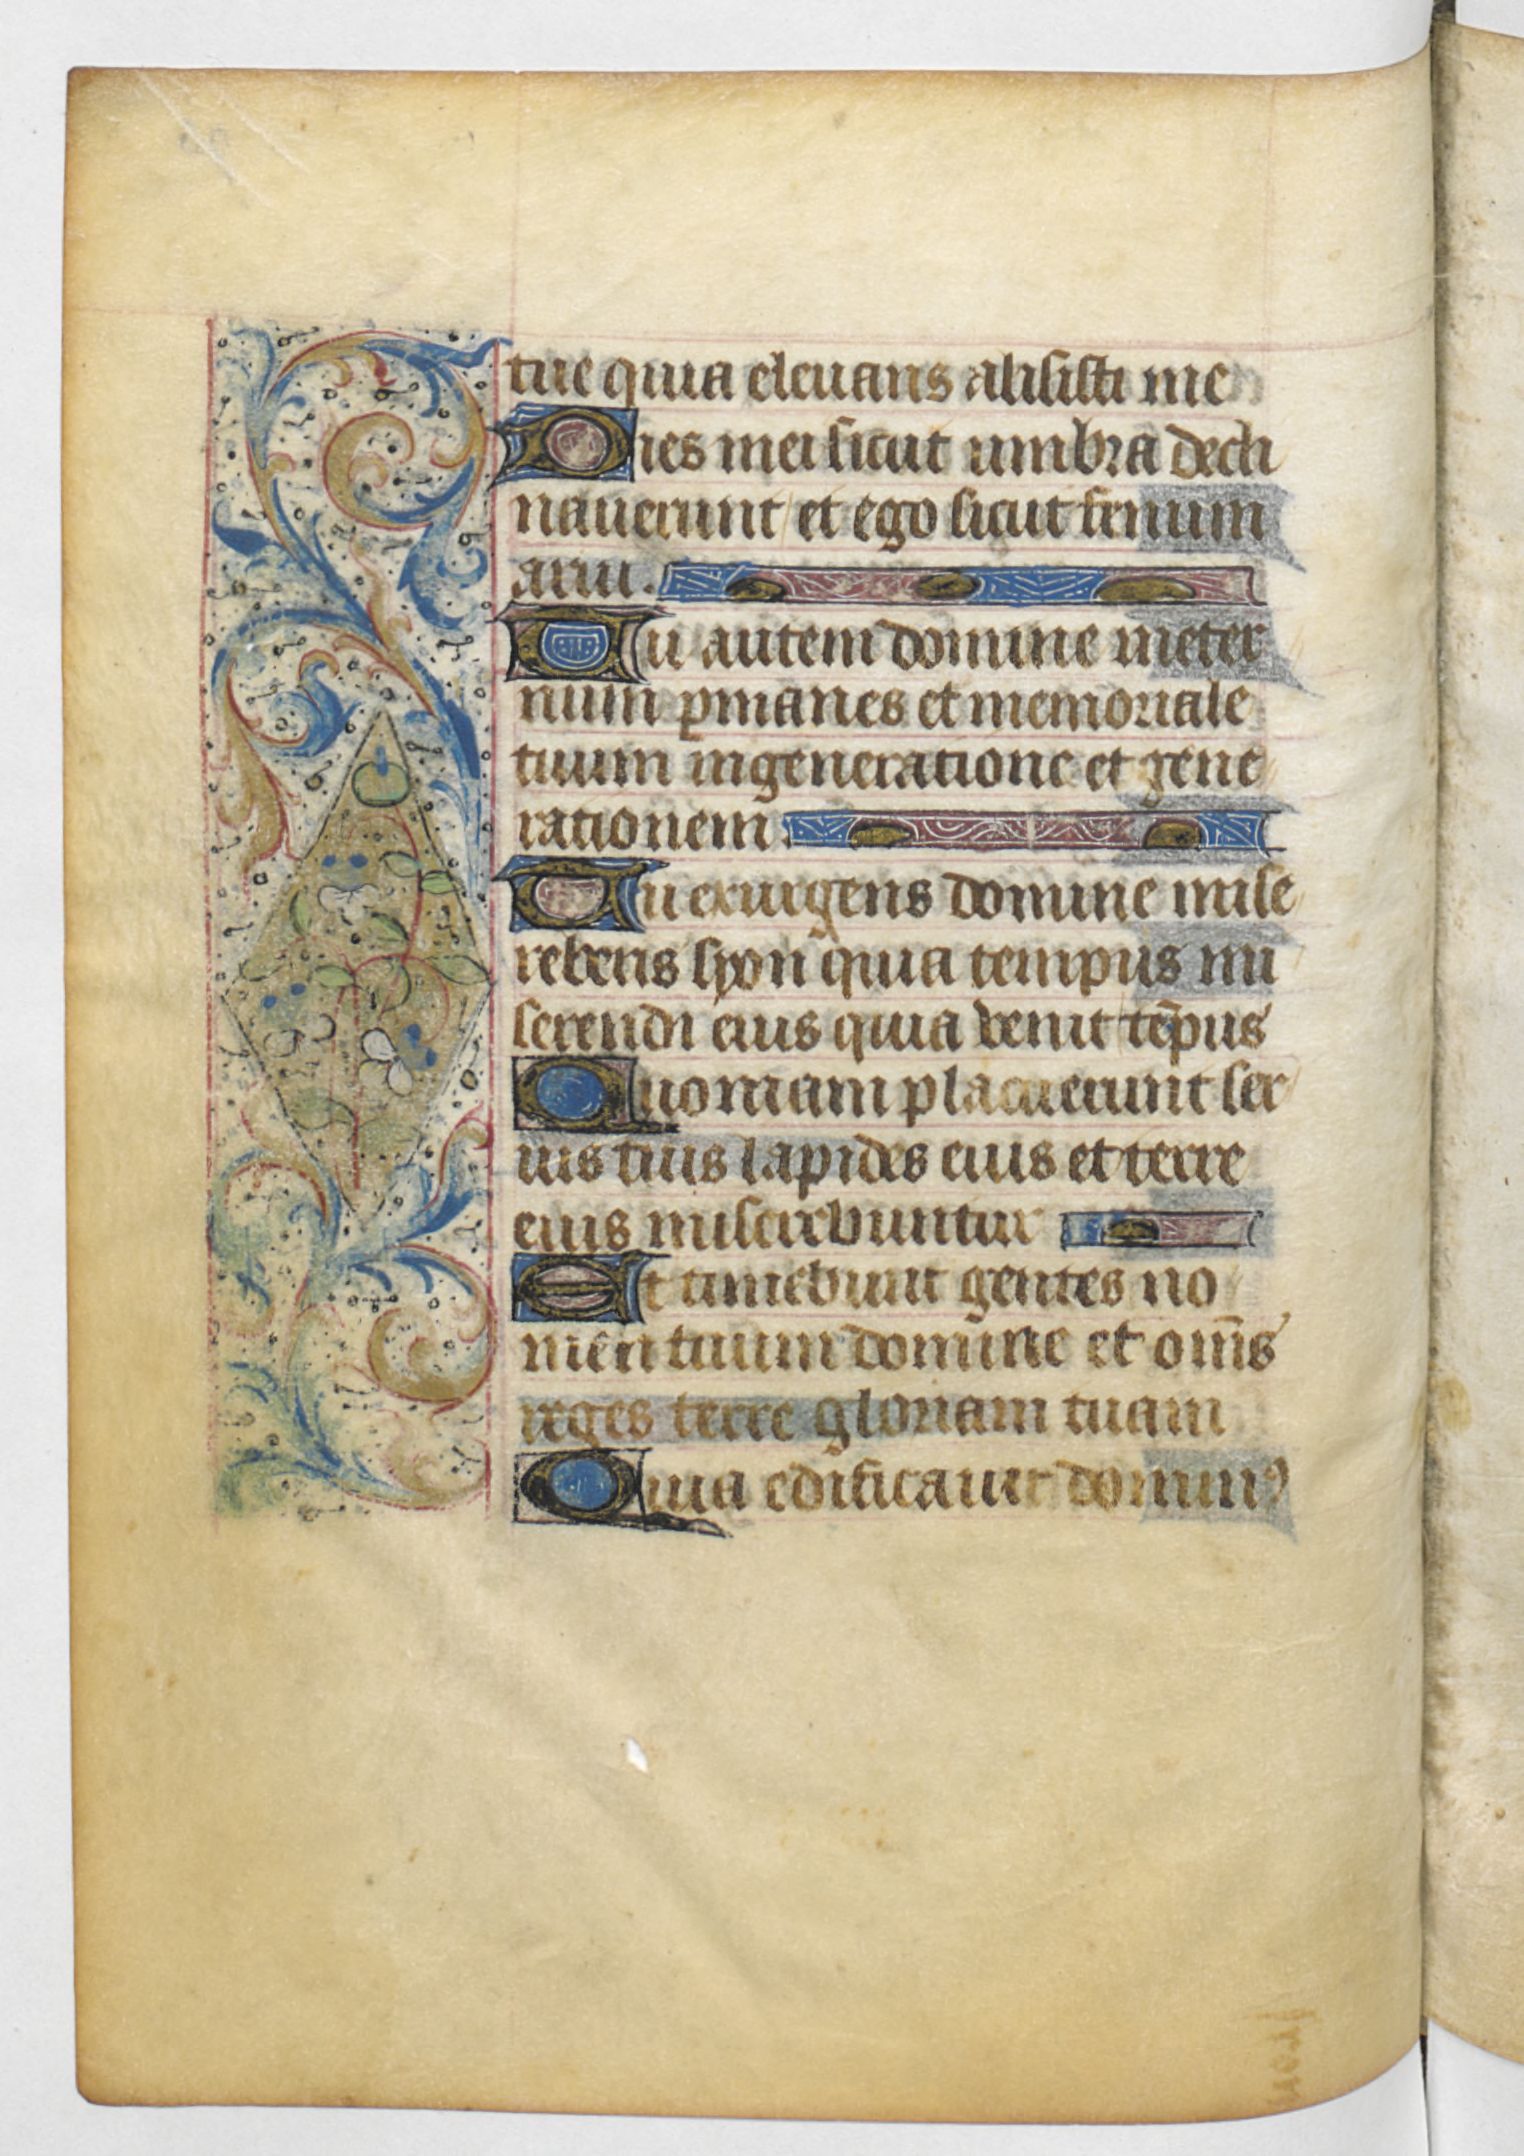 tue quia eleuans alisisti me
Dies mei sicut umbra decli
nauerunt et ego sicut fenum
arui.
Tu autem domine ineter
num pmanes et memoriale
tuum ingeneratione et gene
rationem
Tu exurgens domine mise
reberis syon quia tempus mi
serendi eius quia venit tẽpus
Quoniam placuerunt ser
uis tuis lapides eius et terre
eius miserebuntur
Et timebunt gentes no
men tuum domine et om̃s
reges terre gloriam tuam
Quia edificauit dominꝰ